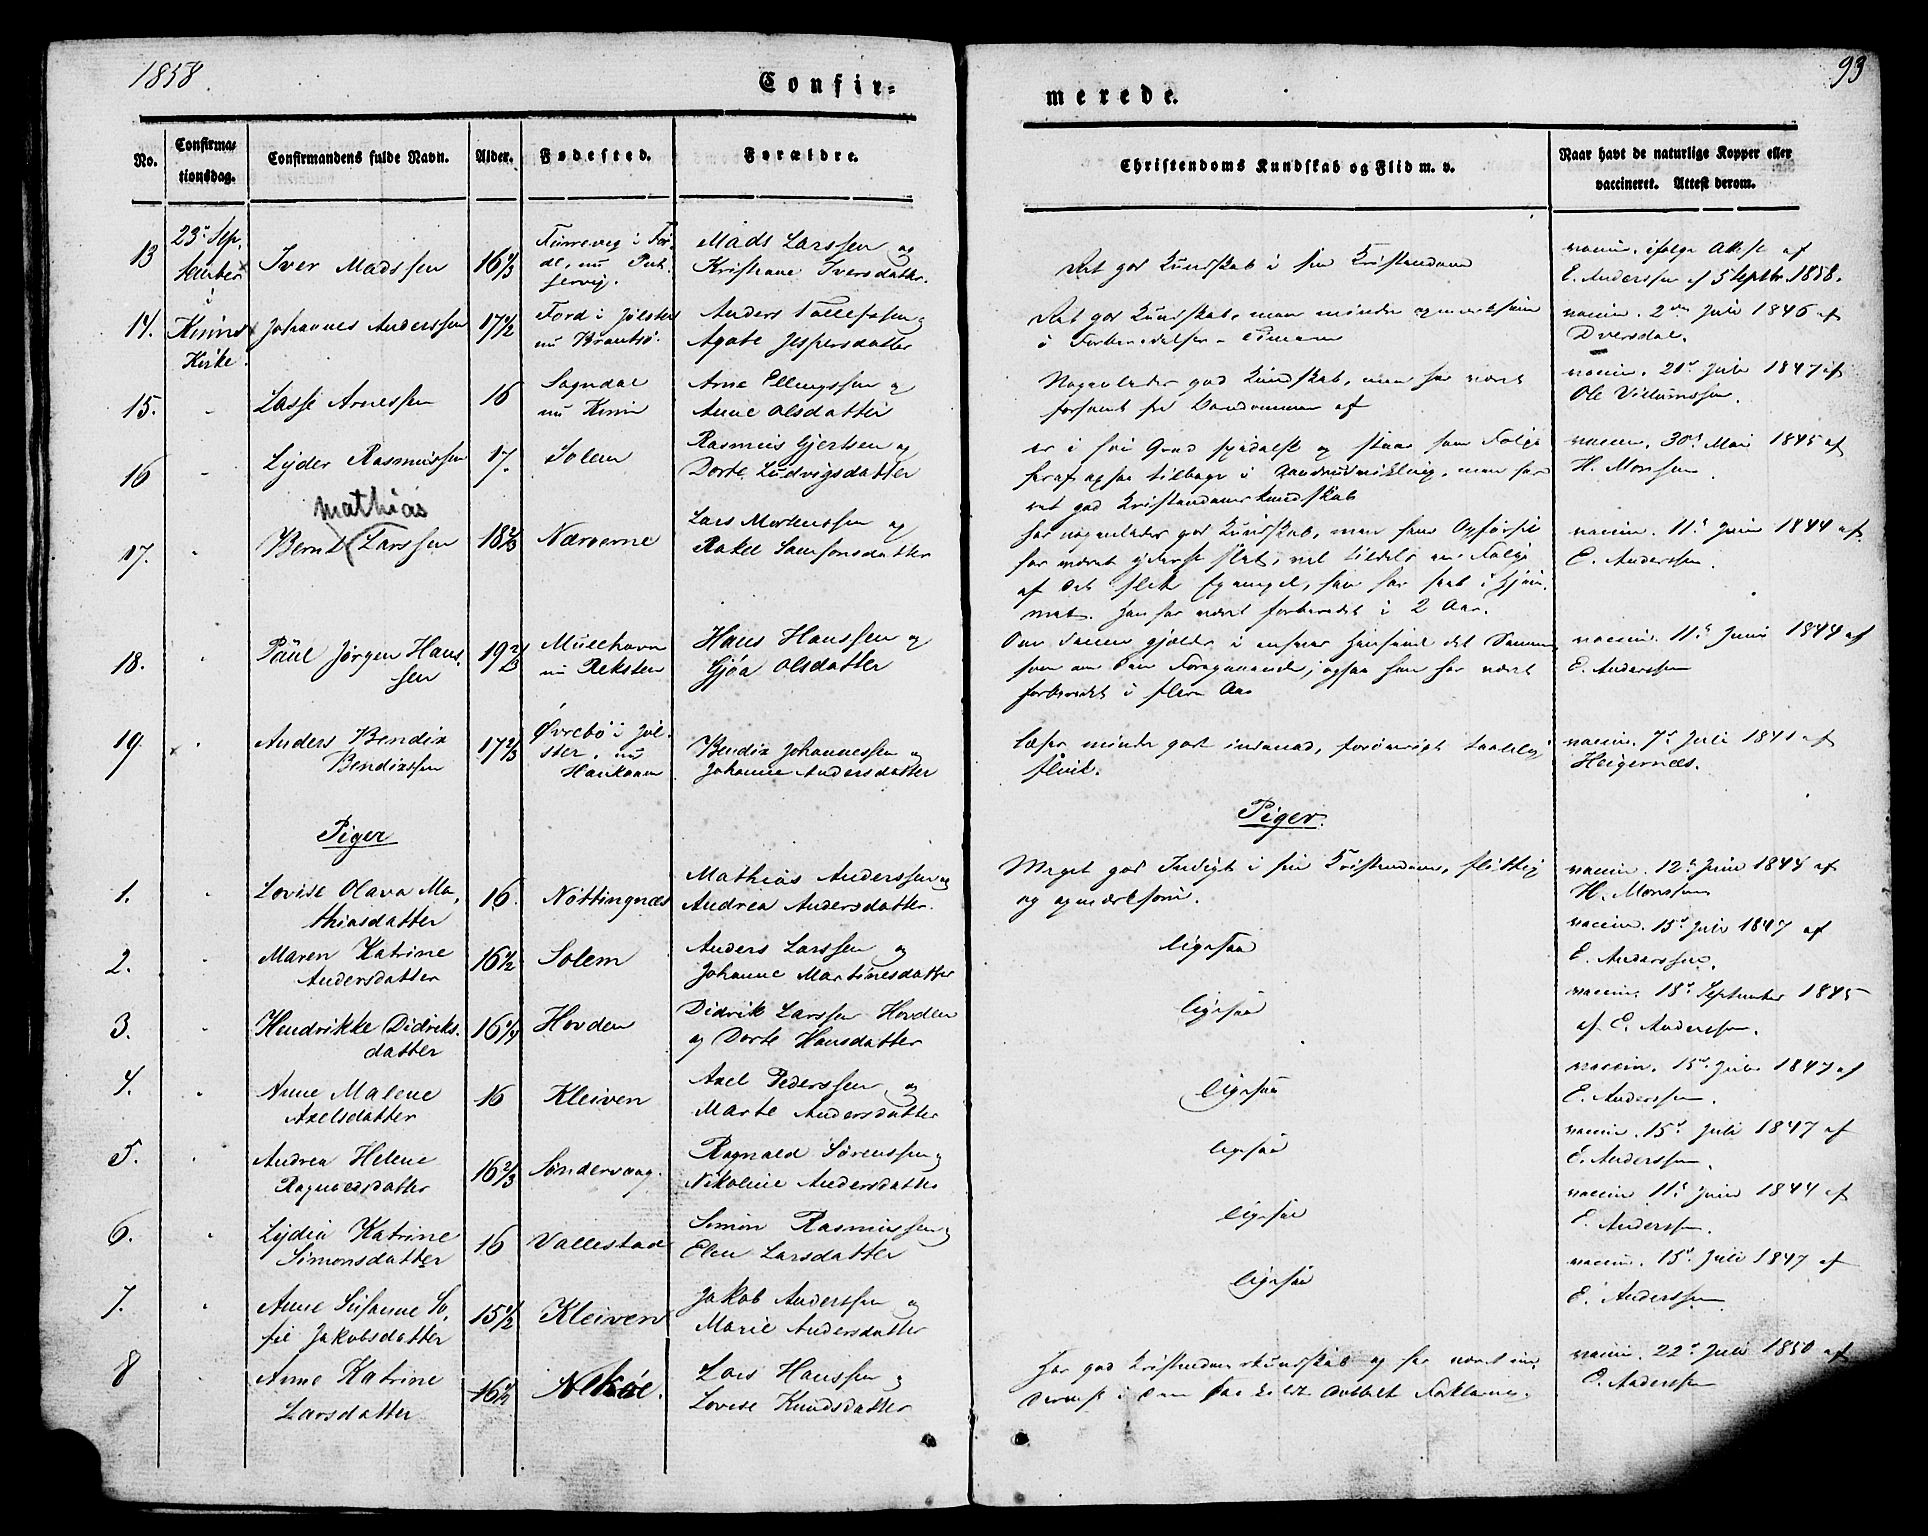 1858.
Confir-
merede.
93
No.
Confirma-
tionsdag.
Confirmandens fulde Navn.
Alder.
Fødested.
Forældre.
Christendoms Kundskab og Flid m. v.
Naar havt de naturlige Kopper eller
vaccineret. Attest derom.
13
23de Sep,
tember
i
Kinns
Kirke.
Iver Madssen
16 1/3
Furevig i Før-
de, nu
Mads Larssen og
Kristiane Iversdatter.
Ret god Kundskab i sin Kristendom
vaccin. ifølge Attest af
E. Anderssen af 5 Septbr. 1858.
14.
Johannes Anderssen
17 1/2
Ford i Jølster
nu
Anders Tollefsen og
Agate Jespersdatter
Ret god Kundskab, men mindre opmærksom
i Forberedelses-Timerne
vaccin. 2den Juli 1846 af
Dversdal.
15.
Lasse Arnessen
16
Sogndal
nu Kinn
Arne Ellingssen og
Anne Olsdatter
Nogenlunde god Kundskab, men har været
forsømt fra Barndommen af
vaccin. 21de Juli 1847 af
Ole Villumssen.
16
Lyder Rasmussen
17.
Solem
Rasmus Gjertsen og
Dorte Ludvigsdatter
er i høi Grad spedalsk og staar som Følge
heraf ogsaa tilbage i Aandsudvikling, men har
ret god Kristendomskundskab
vaccin. 30de Mai 1845 af
H. Monssen
17.
Mathias
Bernt Larssen
18 2/3
Nærøerne
Lars Mortenssen og
Rakel Samsonsdatter
har nogenlunde god Kundskab, men hans Opførsel
har været yderst slet, vel tildels en Følge
af det slette Exempel, han har havt i Hjem-
met. Han har været forberedet i 2 Aar.
vaccin. 11te Juni 1844 af
E. Anderssen.
18.
Paul Jørgen Hans-
sen
19 2/3
Mulehavn
nu Reksten
Hans Hanssen og
Gjøa Olsdatter
Om denne gjælder i enhver Henseende det Samme
som om den Foregaaende; ogsaa han har været
forberedet i flere Aar
vaccin. 11te Juni 1844 af
E. Anderssen
19.
Anders Bendix
Bendixssen
17 2/3
Øvrebø i Jøl-
ster, nu
Haukaaen
Bendix Johannessen og
Johanne Andersdatter
læser mindre godt indenad, forøvrigt taalelig
flink.
vaccin. 7de Juli 1841 af
Heigernæs.
Piger
Piger.
1.
Lovise Olava Ma-
thiasdatter
16.
Nøttingnæs
Mathias Anderssen og
Andrea Andersdatter.
Meget god Indsigt i sin Kristendom, flittig
og opmærksom.
vaccin. 12te Juni 1844 af
H. Monssen
2.
Maren Katrine
Andersdatter
16 1/2
Solem
Anders Larssen og
Johanne Martinesdatter
ligesaa
vaccin. 15de Juli 1847 af
E. Anderssen.
3.
Hendrikke Didriks-
datter
16 1/4
Hovden
Didrik Larssen Hovden
og Dorte Hansdatter
ligesaa
vaccin. 18de September 1845
af E. Anderssen.
4.
Anne Malene
Axelsdatter
16
Kleiven
Axel Pederssen og
Marte Andersdatter
ligesaa
vaccin. 15de Juli 1847 af
E. Anderssen.
5.
Andrea Helene
Ragnaldsdatter
16 2/3
Søndervaag.
Ragnald Sørenssen og
Nikoline Andersdatter
ligesaa
vaccin. 15de Juli 1847 af
E. Anderssen.
6.
Lydia Katrine
Simonsdatter
16
Vallestad
Simon Rasmussen og
Elen Larsdatter
ligesaa
vaccin. 11te Juni 1844 af
E. Anderssen.
7.
Anne Susanne So-
fie Jakobsdatter
15 1/2
Kleiven
Jakob Anderssen og
Marie Andersdatter
ligesaa
vaccin. 15de Juli 1847 af
E. Anderssen
8
Anne Katrine
Larsdatter
16 1/4
Alköe.
Lars Hanssen og
Lovise Knudsdatter
Har god Kristendomskundskab og har været un-
dervist i den saakaldte dobbelt Forklaring.
vaccin. 22de Juli 1850 af
E. Anderssen